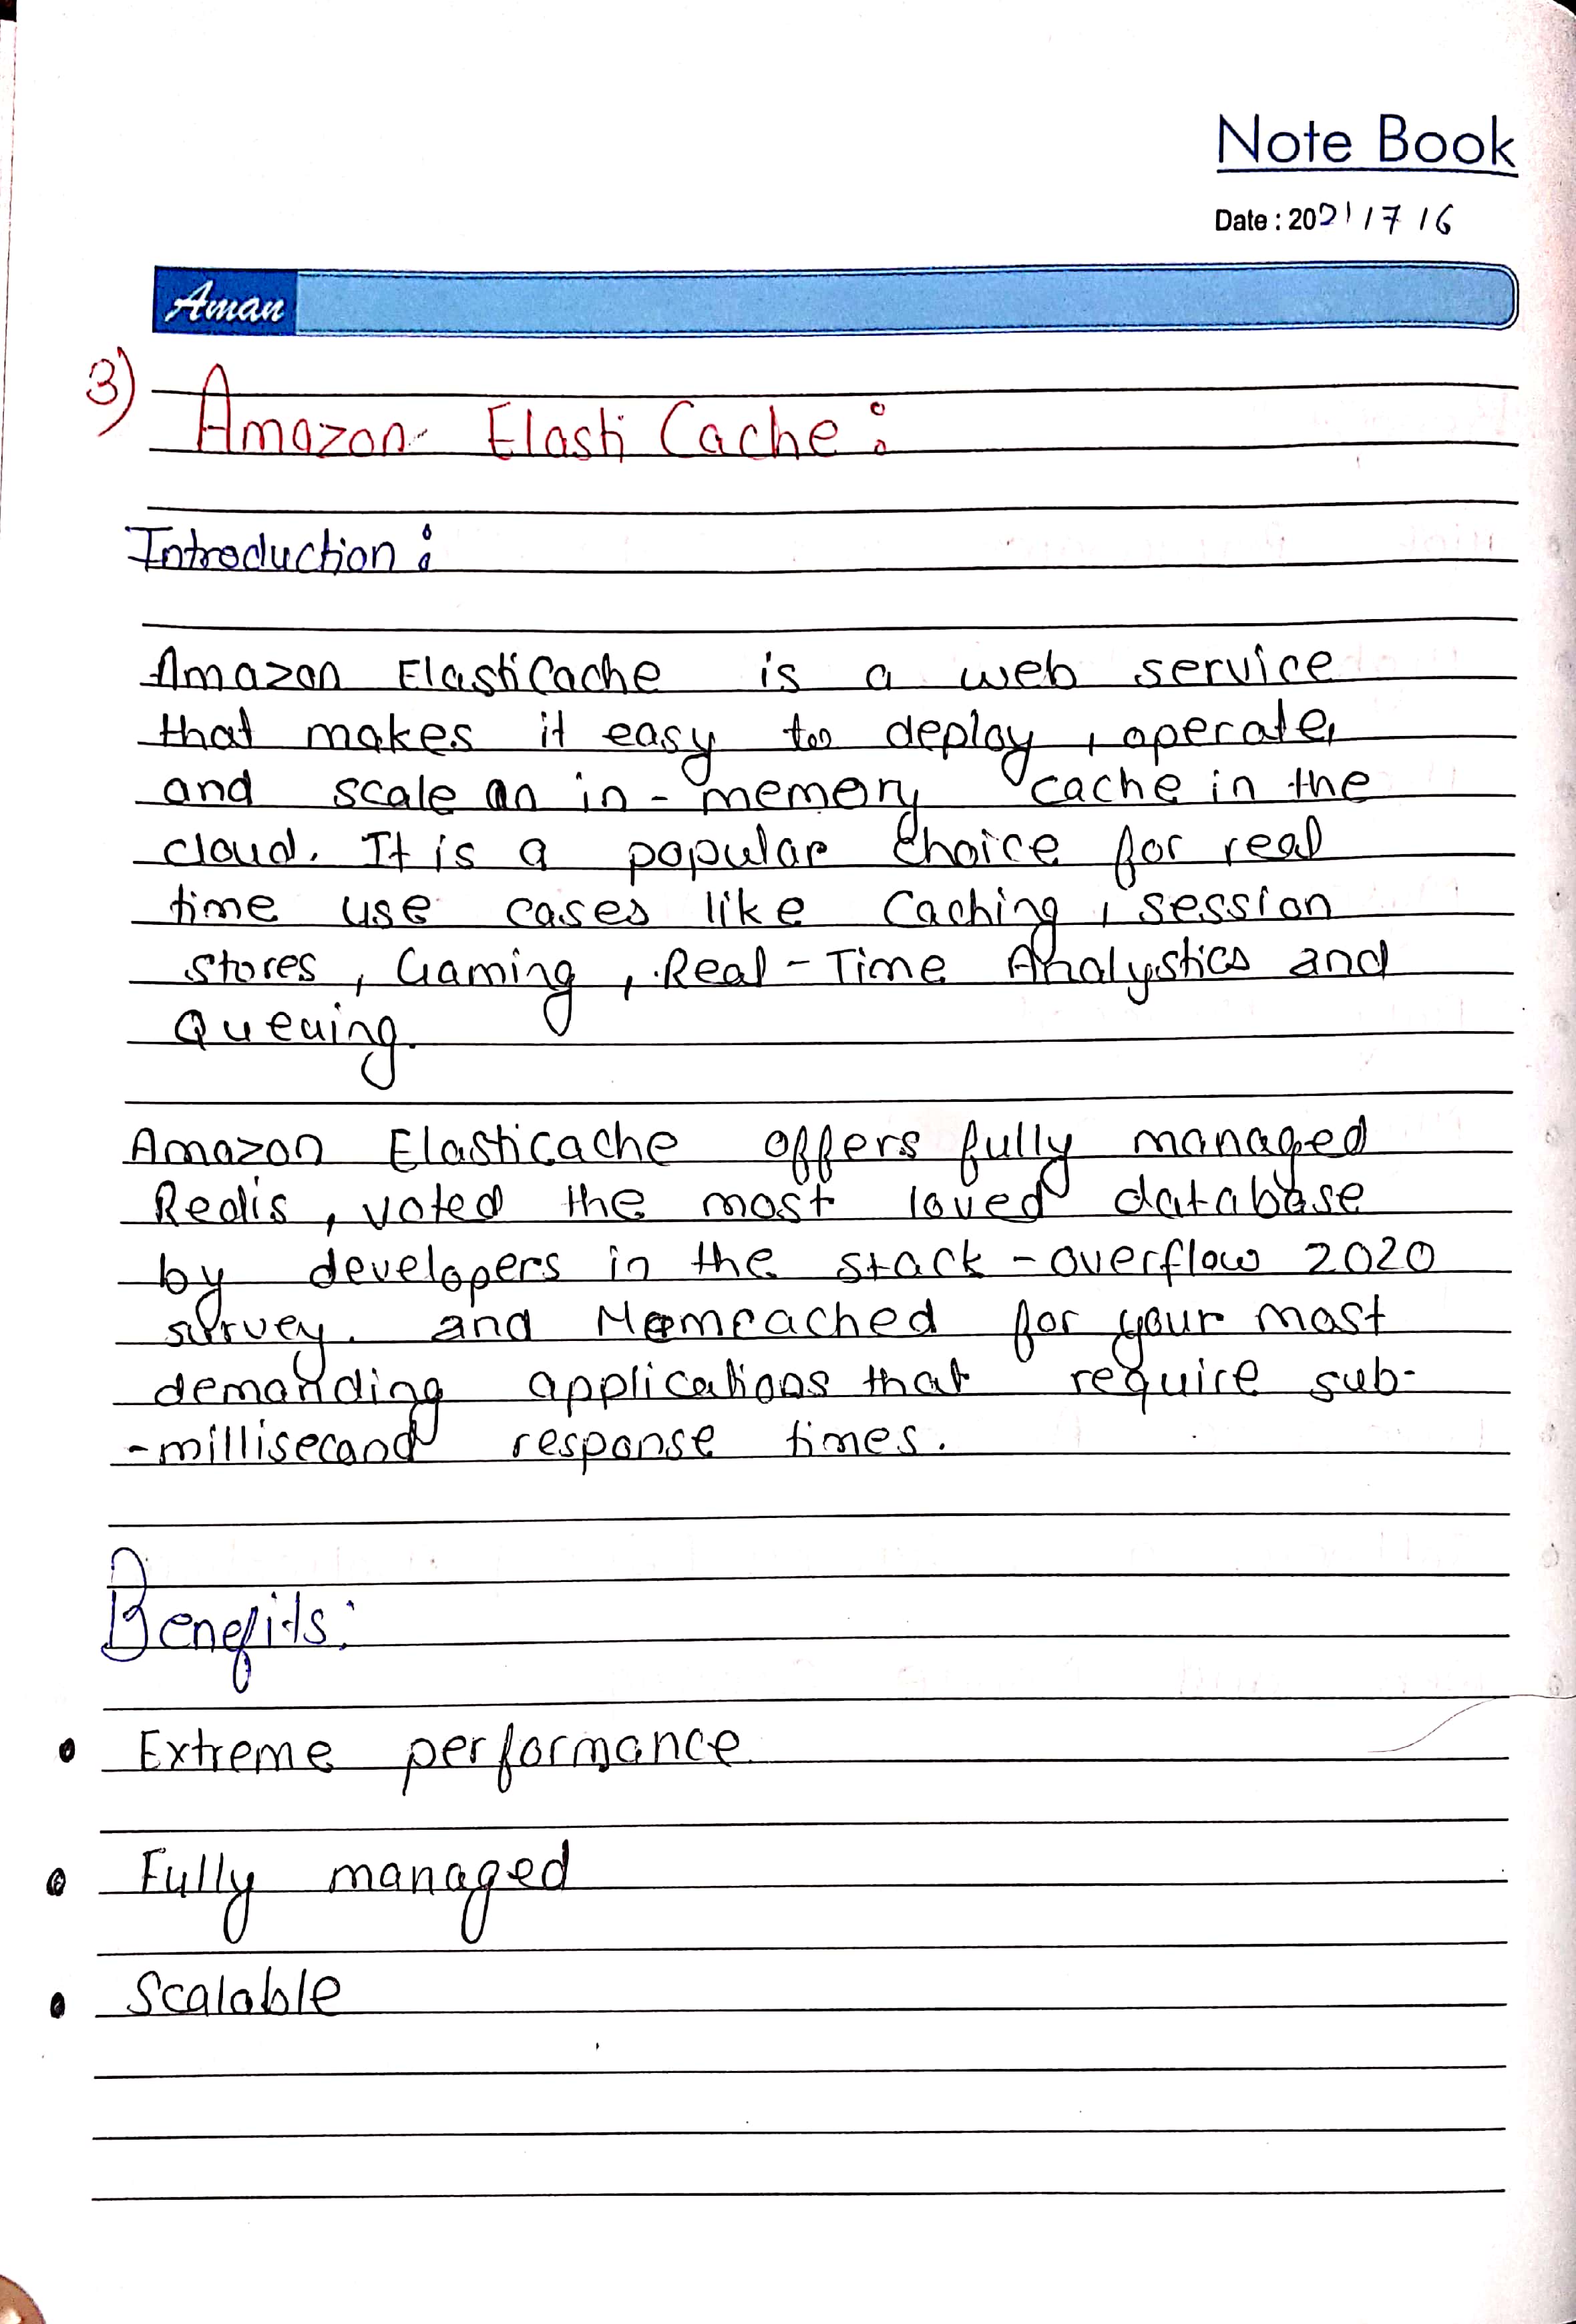 Note Book
Date : 2021/7/6
Aman
3) Amazon ElastiCache:
Introduction:
Amazon ElastiCache is a web service
that makes it easy to deploy, operate,
and scale an in-memory cache in the
cloud. It is a popular choice for real
time use cases like Caching, session
stores, Gaming, Real-Time Analystics and
Queuing.
Amazon Elasticache offers fully managed
Redis, voted the most loved database
by developers in the stack-overflow 2020
survey. and Memcached for your most
demanding applications that require sub-
-millisecond response times.
Benefits:
• Extreme performance
• Fully managed
• Scalable